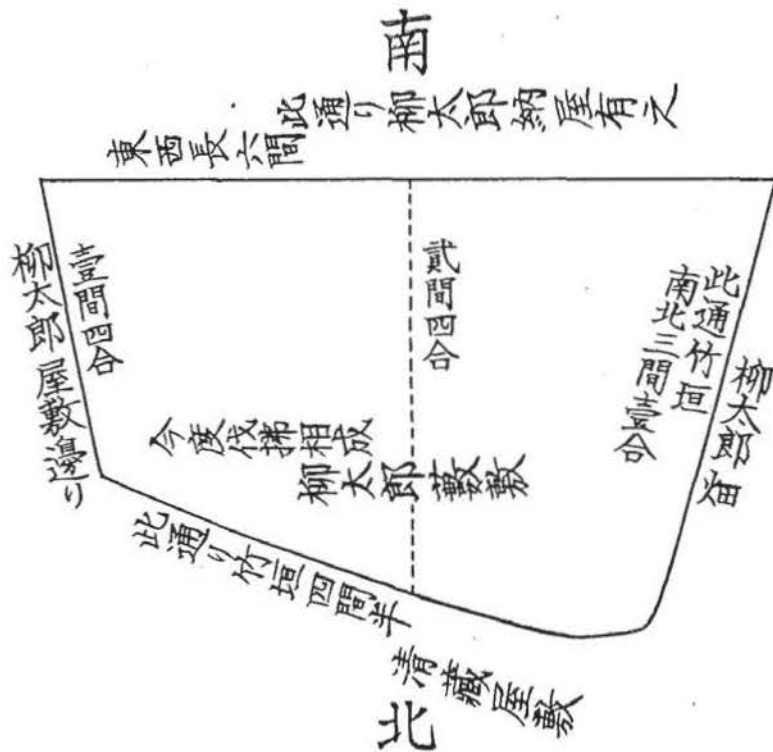 南
此通り柳太郎納屋有之
東西長六間
柳太郎屋敷邊り
壹間四合
貳間四合
此通竹垣
南北三間壹合
柳太郎畄
今度伐拂相成
柳太郎藪敷
此通り竹垣四間半
清藏屋敷
北